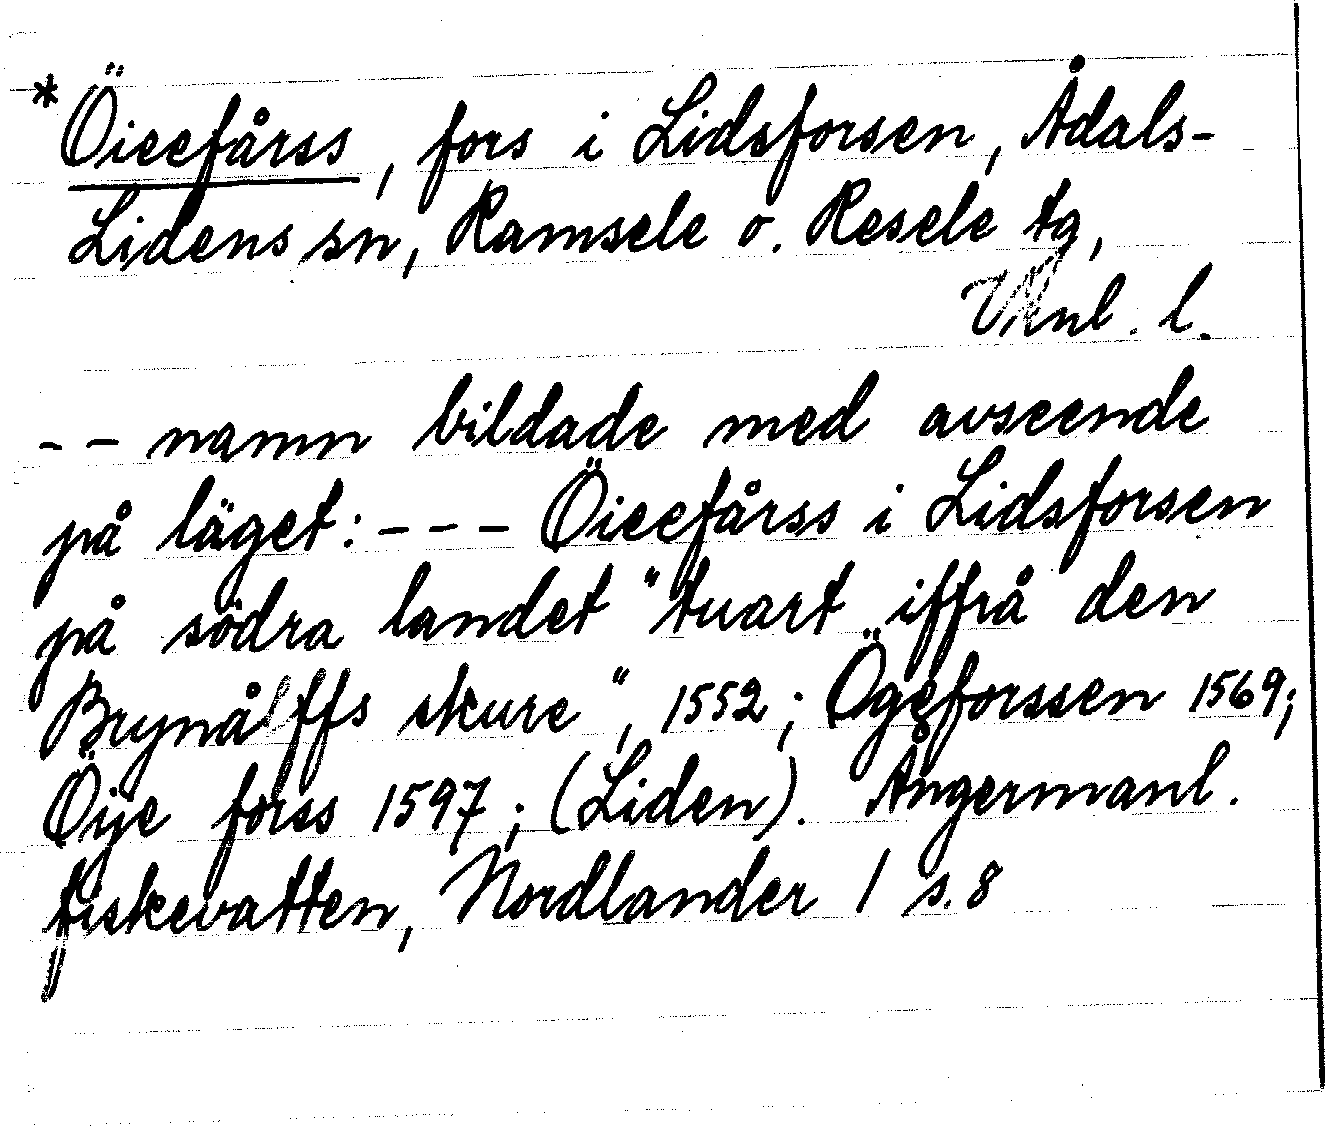 *Öieefårss, fors i Lidsforsen, Ådals-
Lidens sn, Ramsele o. Resele tg,
Vnl. l.
- - namn bildade med avseende
på läget: - - - Öieefårss i Lidsforsen
på södra landet "tuart iffrå den
Brynålffs skure", 1552; Ögeforssen 1569;
Öije forss 1597; (Liden). Ångermanl.
fiskevatten, Nordlander 1 s. 8